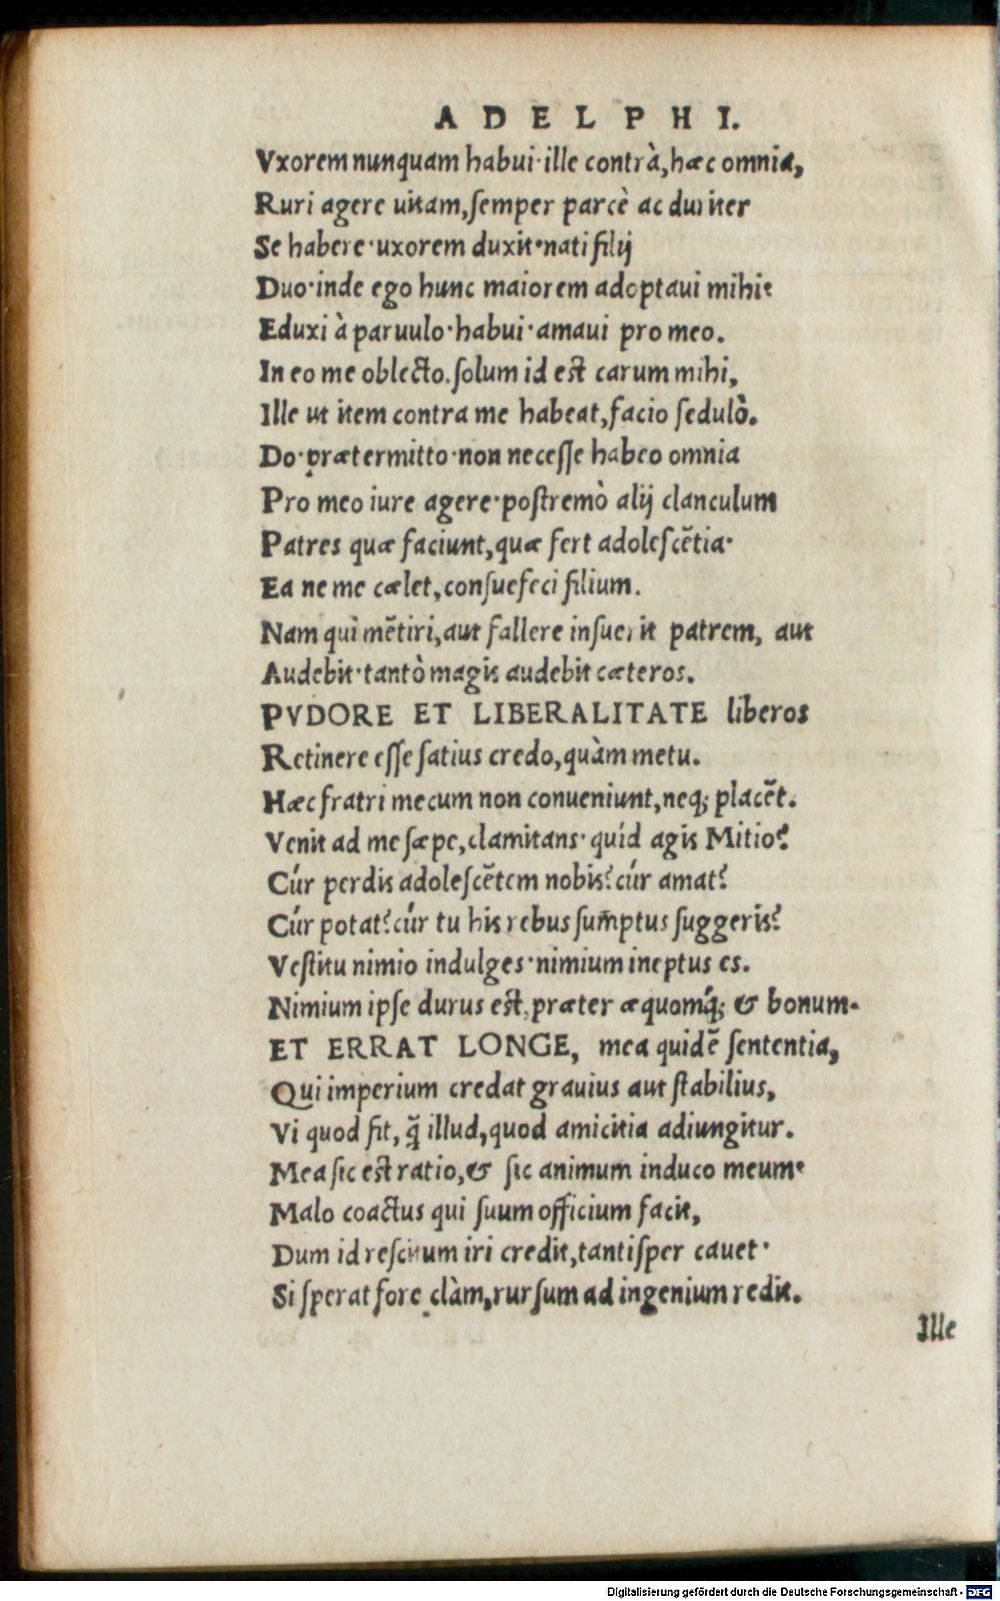 ADELPHI.
Vxorem nunquam habui·ille contrà,hæc omnia,
Ruri agere uitam,ſemper parcè ac duriter
Se habere·uxorem duxit·nati filij
Duo·inde ego hunc maiorem adoptaui mihi·
Eduxi à paruulo·habui·amaui pro meo.
In eo me oblecto.ſolum id eſt carum mihi,
Ille ut item contra me habeat,facio ſedulò.
Do·prætermitto·non neceſſe habeo omnia
Pro meo iure agere·poſtremò alij clanculum
Patres quæ faciunt,quæ fert adoleſcẽtia·
Ea ne me cælet,conſuefeci filium.
Nam qui mẽtiri,aut fallere inſuerit patrem, aut
Audebit·tantò magis audebit cæteros.
PVDORE ET LIBERALITATE liberos
Retinere eſſe ſatius credo,quàm metu.
Hæc fratri mecum non conueniunt,neq; placẽt.
Venit ad me ſæpe,clamitans·quid agis Mitio?
Cúr perdis adoleſcẽtem nobis?cúr amat?
Cúr potat?cúr tu his rebus ſum̃ptus ſuggeris?
Veſtitu nimio indulges·nimium ineptus es.
Nimium ipſe durus eſt,præter æquomq́; & bonum·
ET ERRAT LONGE, mea quidẽ ſententia,
Qui imperium credat grauius aut ſtabilius,
Vi quod fit, q̃ illud,quod amicitia adiungitur.
Mea ſic eſt ratio,& ſic animum induco meum·
Malo coactus qui ſuum officium facit,
Dum id reſcitum iri credit,tantiſper cauet·
Si ſperat fore clàm,rurſum ad ingenium redit.
Ille
Digitalisierung gefördert durch die Deutsche Forschungsgemeinschaft - DFG